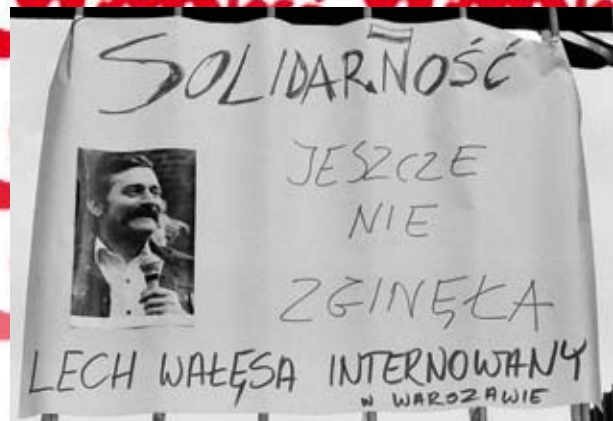 SOLIDARNOŚĆ
JESZCZE
NIE
ZGINĘŁA
LECH WAŁĘSA INTERNOWANY
W WARSZAWIE